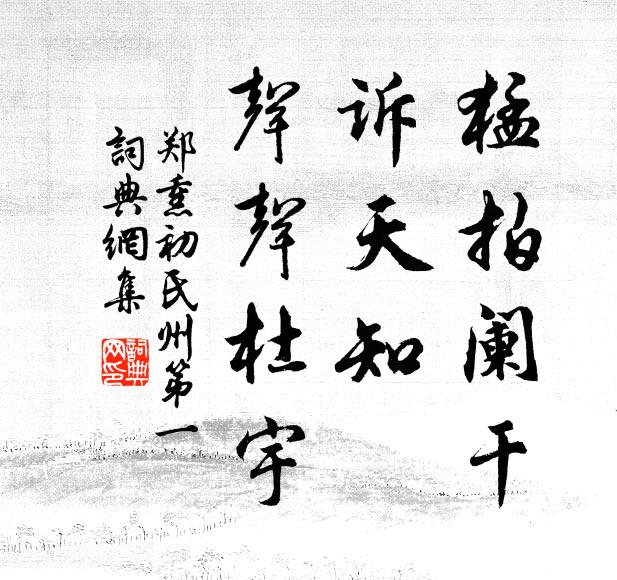 猛拍阑干
诉天知
聲聲杜宇
郑熏初氏州第一
詞典網集
詞典
网印